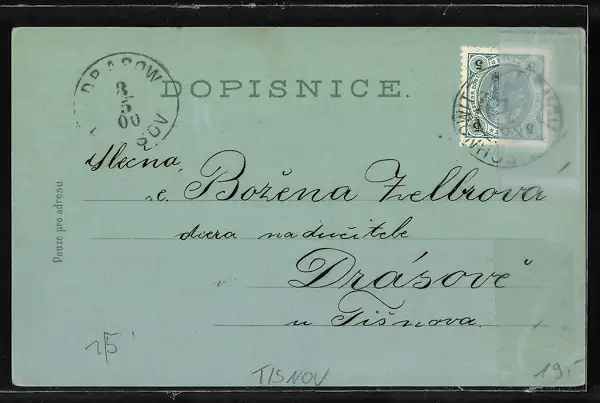 DRASOW
8/5
00
DOPISNICE.
5 5
5 5
Slečna
sl. Božena Zelbrova
dcera nadučitele
Drásově
u Tišnova.
Pouze pro adresu
15
TISNOV
19.-